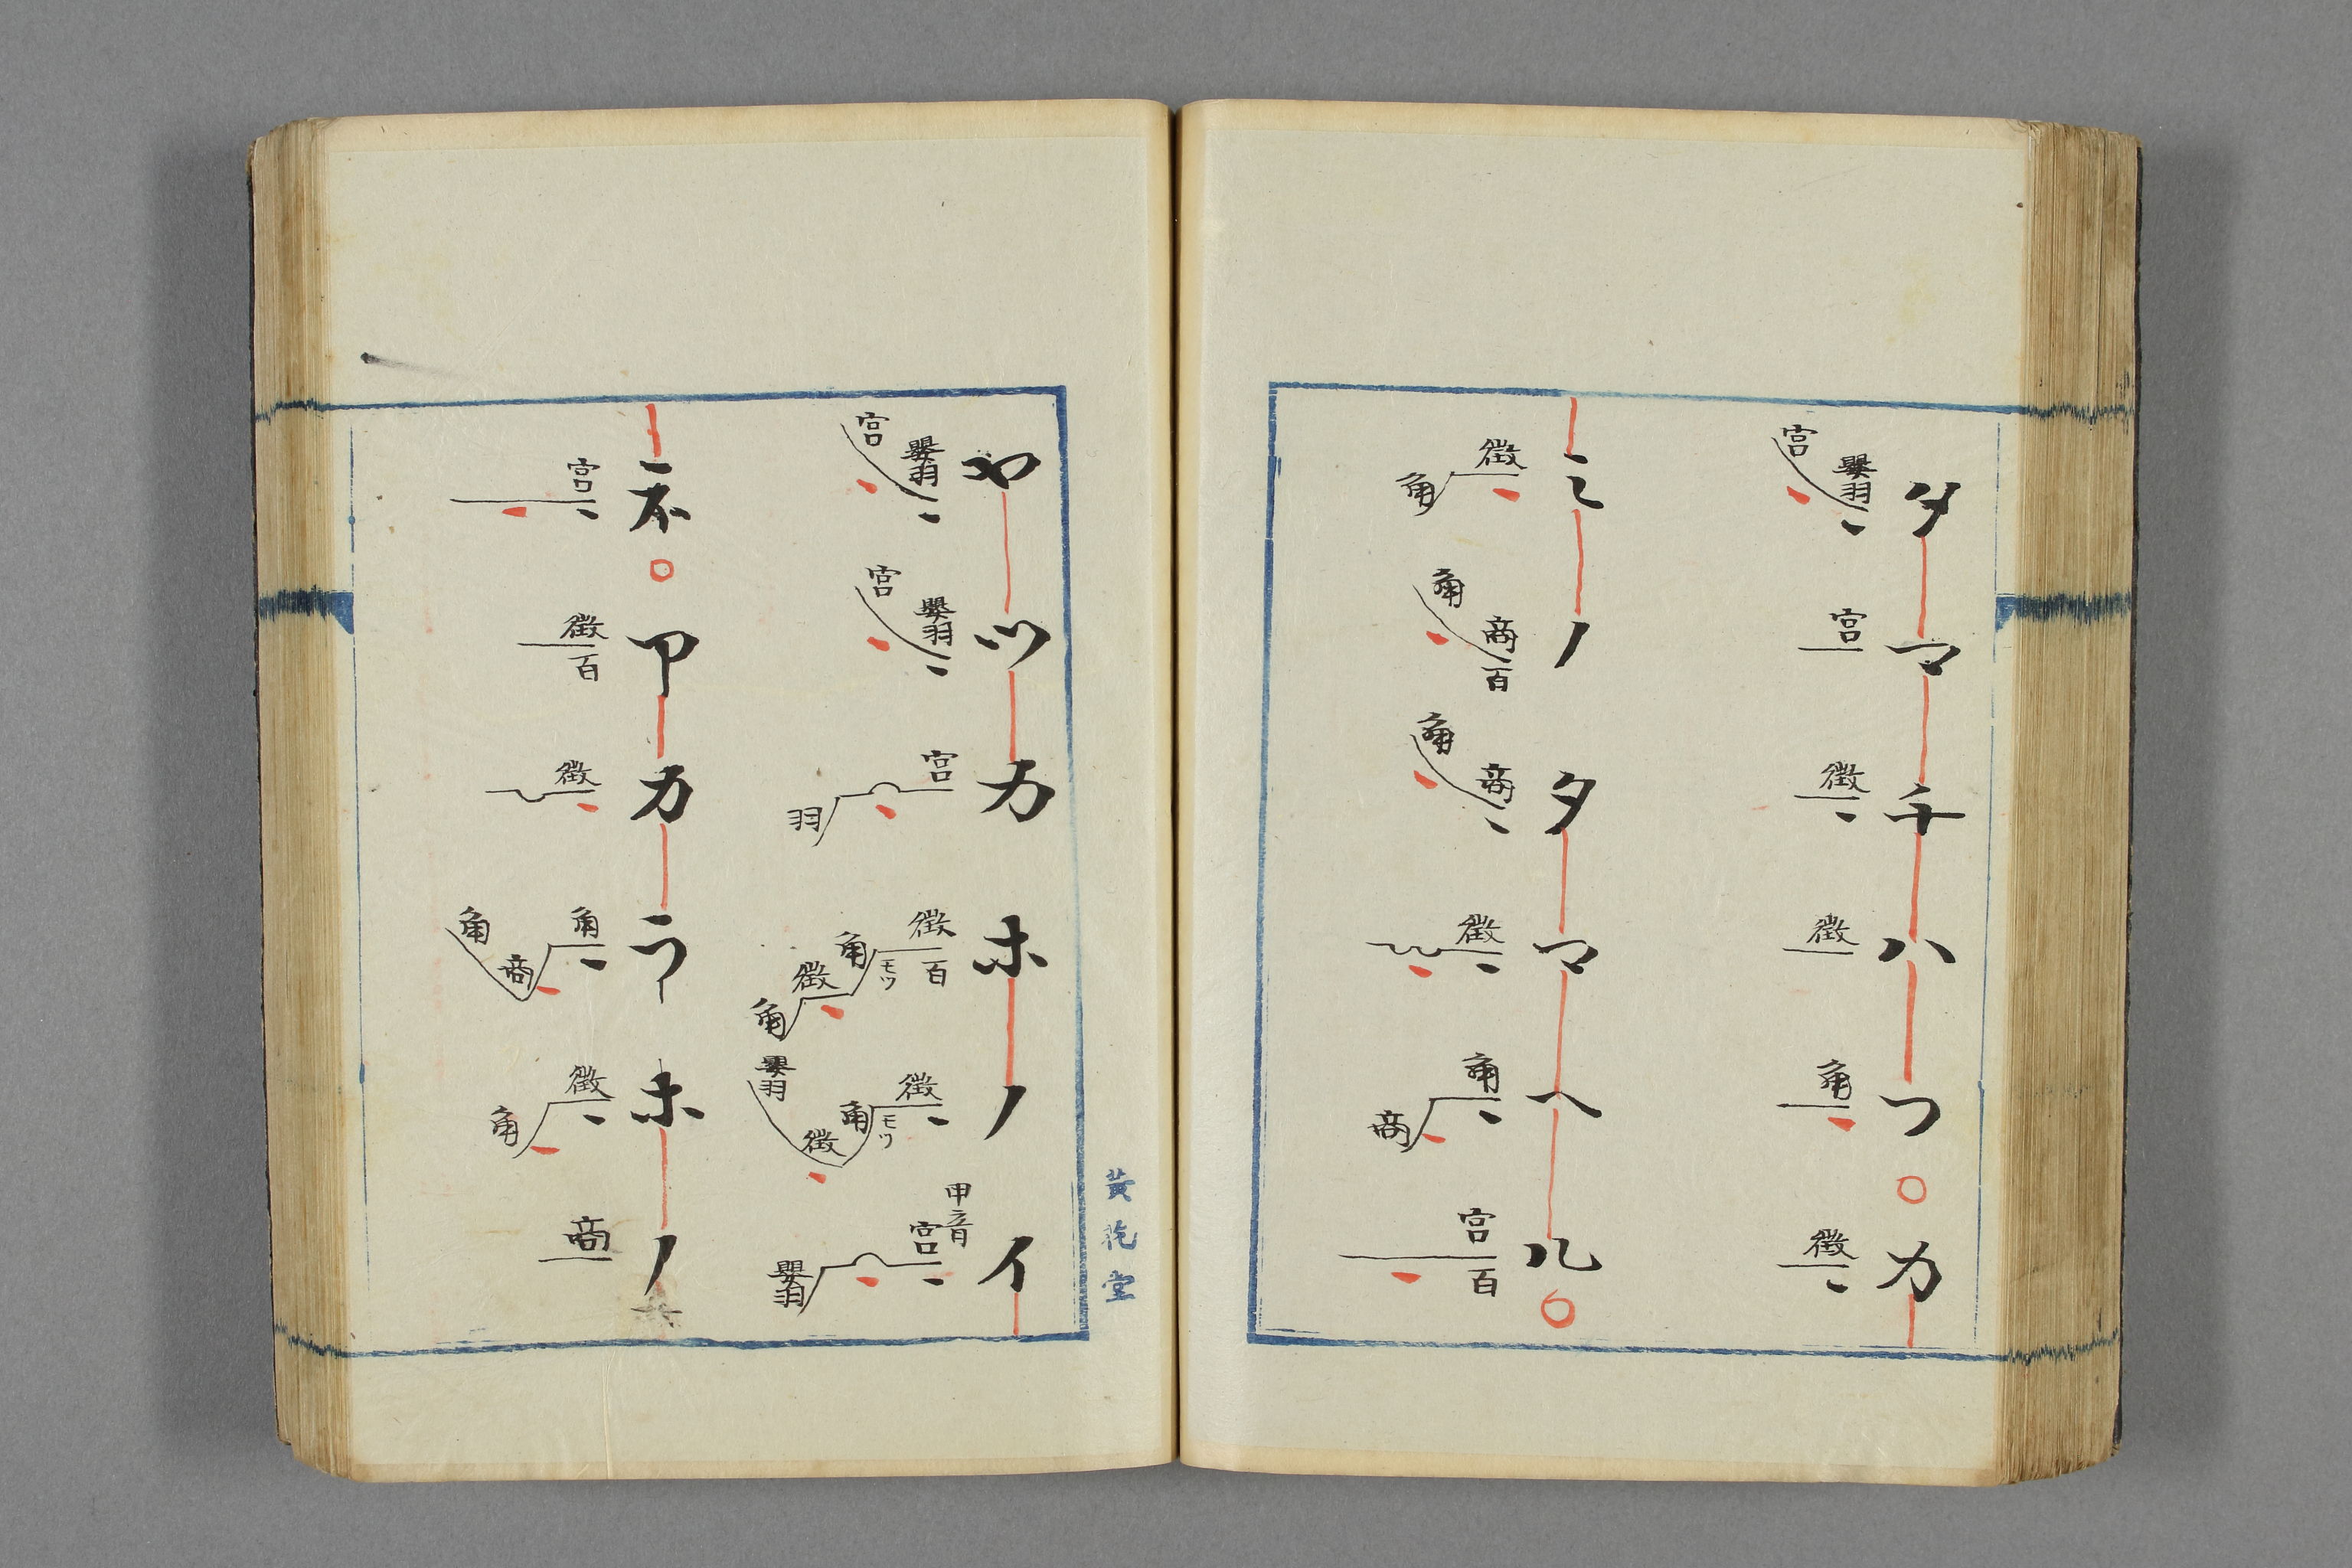 タマチハツ〇カ
宮 嬰羽 宮 徴 徴 角 徴
ミノタマヘル〇
徴 角 角 商 百 角 商 徴 角 商 宮 百
黄花堂
ヤツカホノイ
宮 嬰羽 宮 嬰羽 宮 羽 徴 百 角 モツ 徴 角 徴 角 モツ 徴 嬰羽 甲音 宮 嬰羽
ネ〇アカラホノ
宮 徴 百 徴 角 商 角 徴 角 商